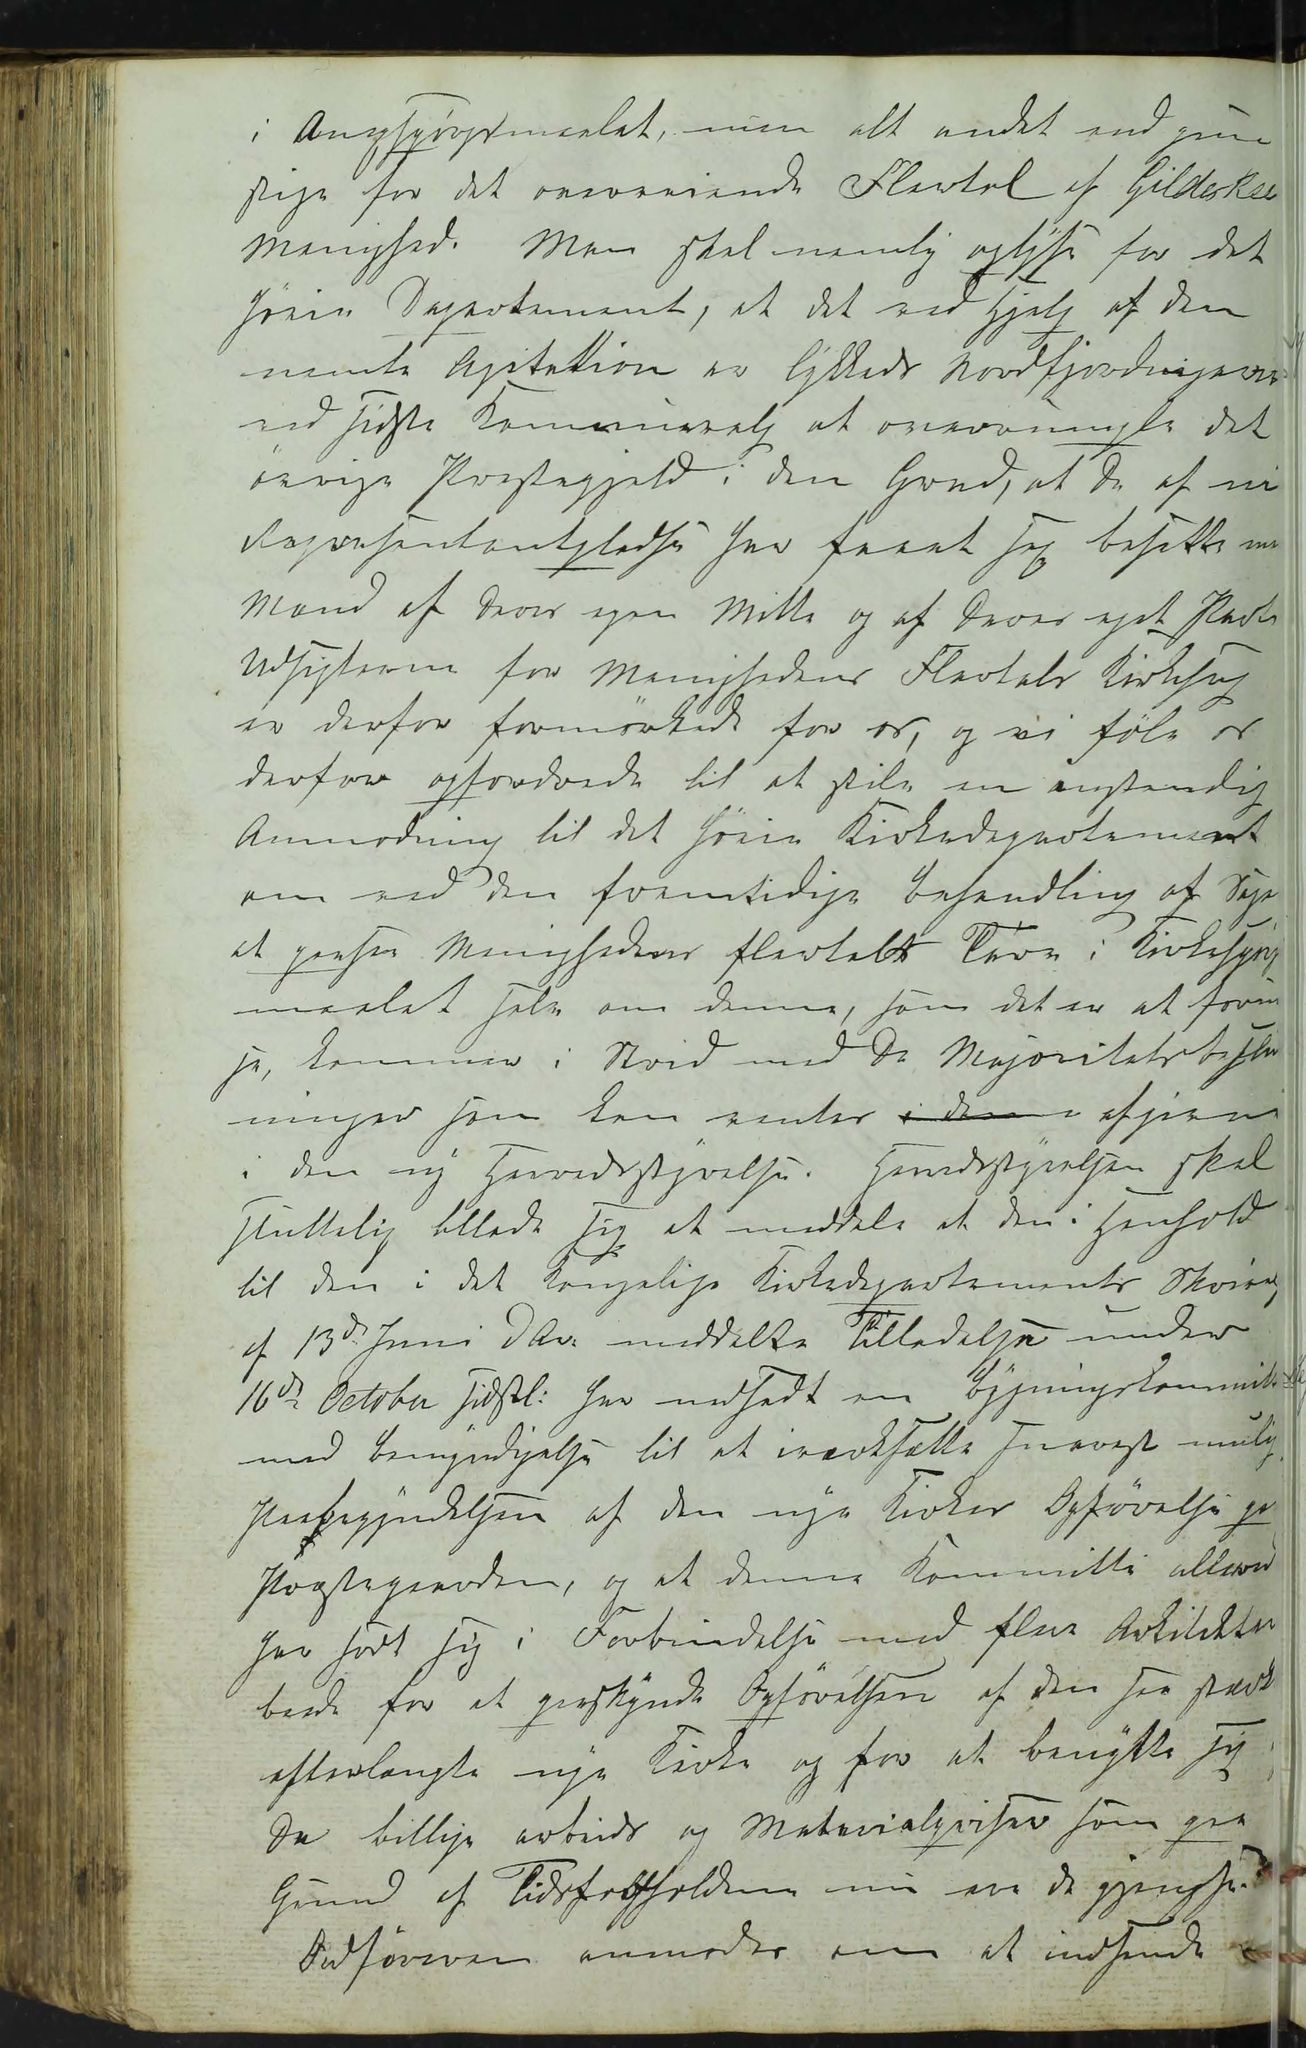 i Angjørgsmaalet, men alt andet end gun
stige for det overveiende Flertal af Gildeskaal
Menighed. Man skal nemlig oplyse for det
høie Departement, at det ved Hjelp af den
nemte Agitation er lykkeds Nordfjordingerne
ved sidste Kommunevalg at overrumple det
øvrige Præstegjeld i den Grad, at de af ni
Repræsentantpladse har faaet sig besatte med
Mænd af deres egen Mitte og af deres eget Parti
Udsigterne for Menighedens Flertals Kirkesag
er derfor formørkede for os, og vi føle os
derfor opfordrede til at stile en instendig
Anmodning til det høie Kirkedepartement
om ved den fremtidige Behandling af Sage
at gense Menighedens flertals Tarv i Kirkespørgs
maalet selv om denne, som det er at forud
se, kommer i Strid med de Majoritetsbeslut
ninger som kan ventes i denne afgivne
i den ny Herredsstyrelse. Herredsstyrelsen skal
sluttelig tillade sig at meddele at den i Henhold
til den i det kongelige Kirkedepartements Skrivelse
af 13de Juni d Ar. meddelte Tilladelse under
16de October sidstl: har nedsadt en Bygningskommitte
med Bemyndigelse til at iværksætte snarest mulig
Paabegyndelsen af den nye Kirkes Opførelse paa
Præstegaarden, og at denne Kommitte allered
har sadt sig i Forbindelse med flere Arkitekter
baade for at paaskynde Opførelsen af den saa stærkt
efterlengte nye Kirke og for at benytte sig
de billige arbeids og Materialpriser som paa
Grund af Tidsforholdene nu ere de gjengse.
Ordføreren anmodes om at indsende